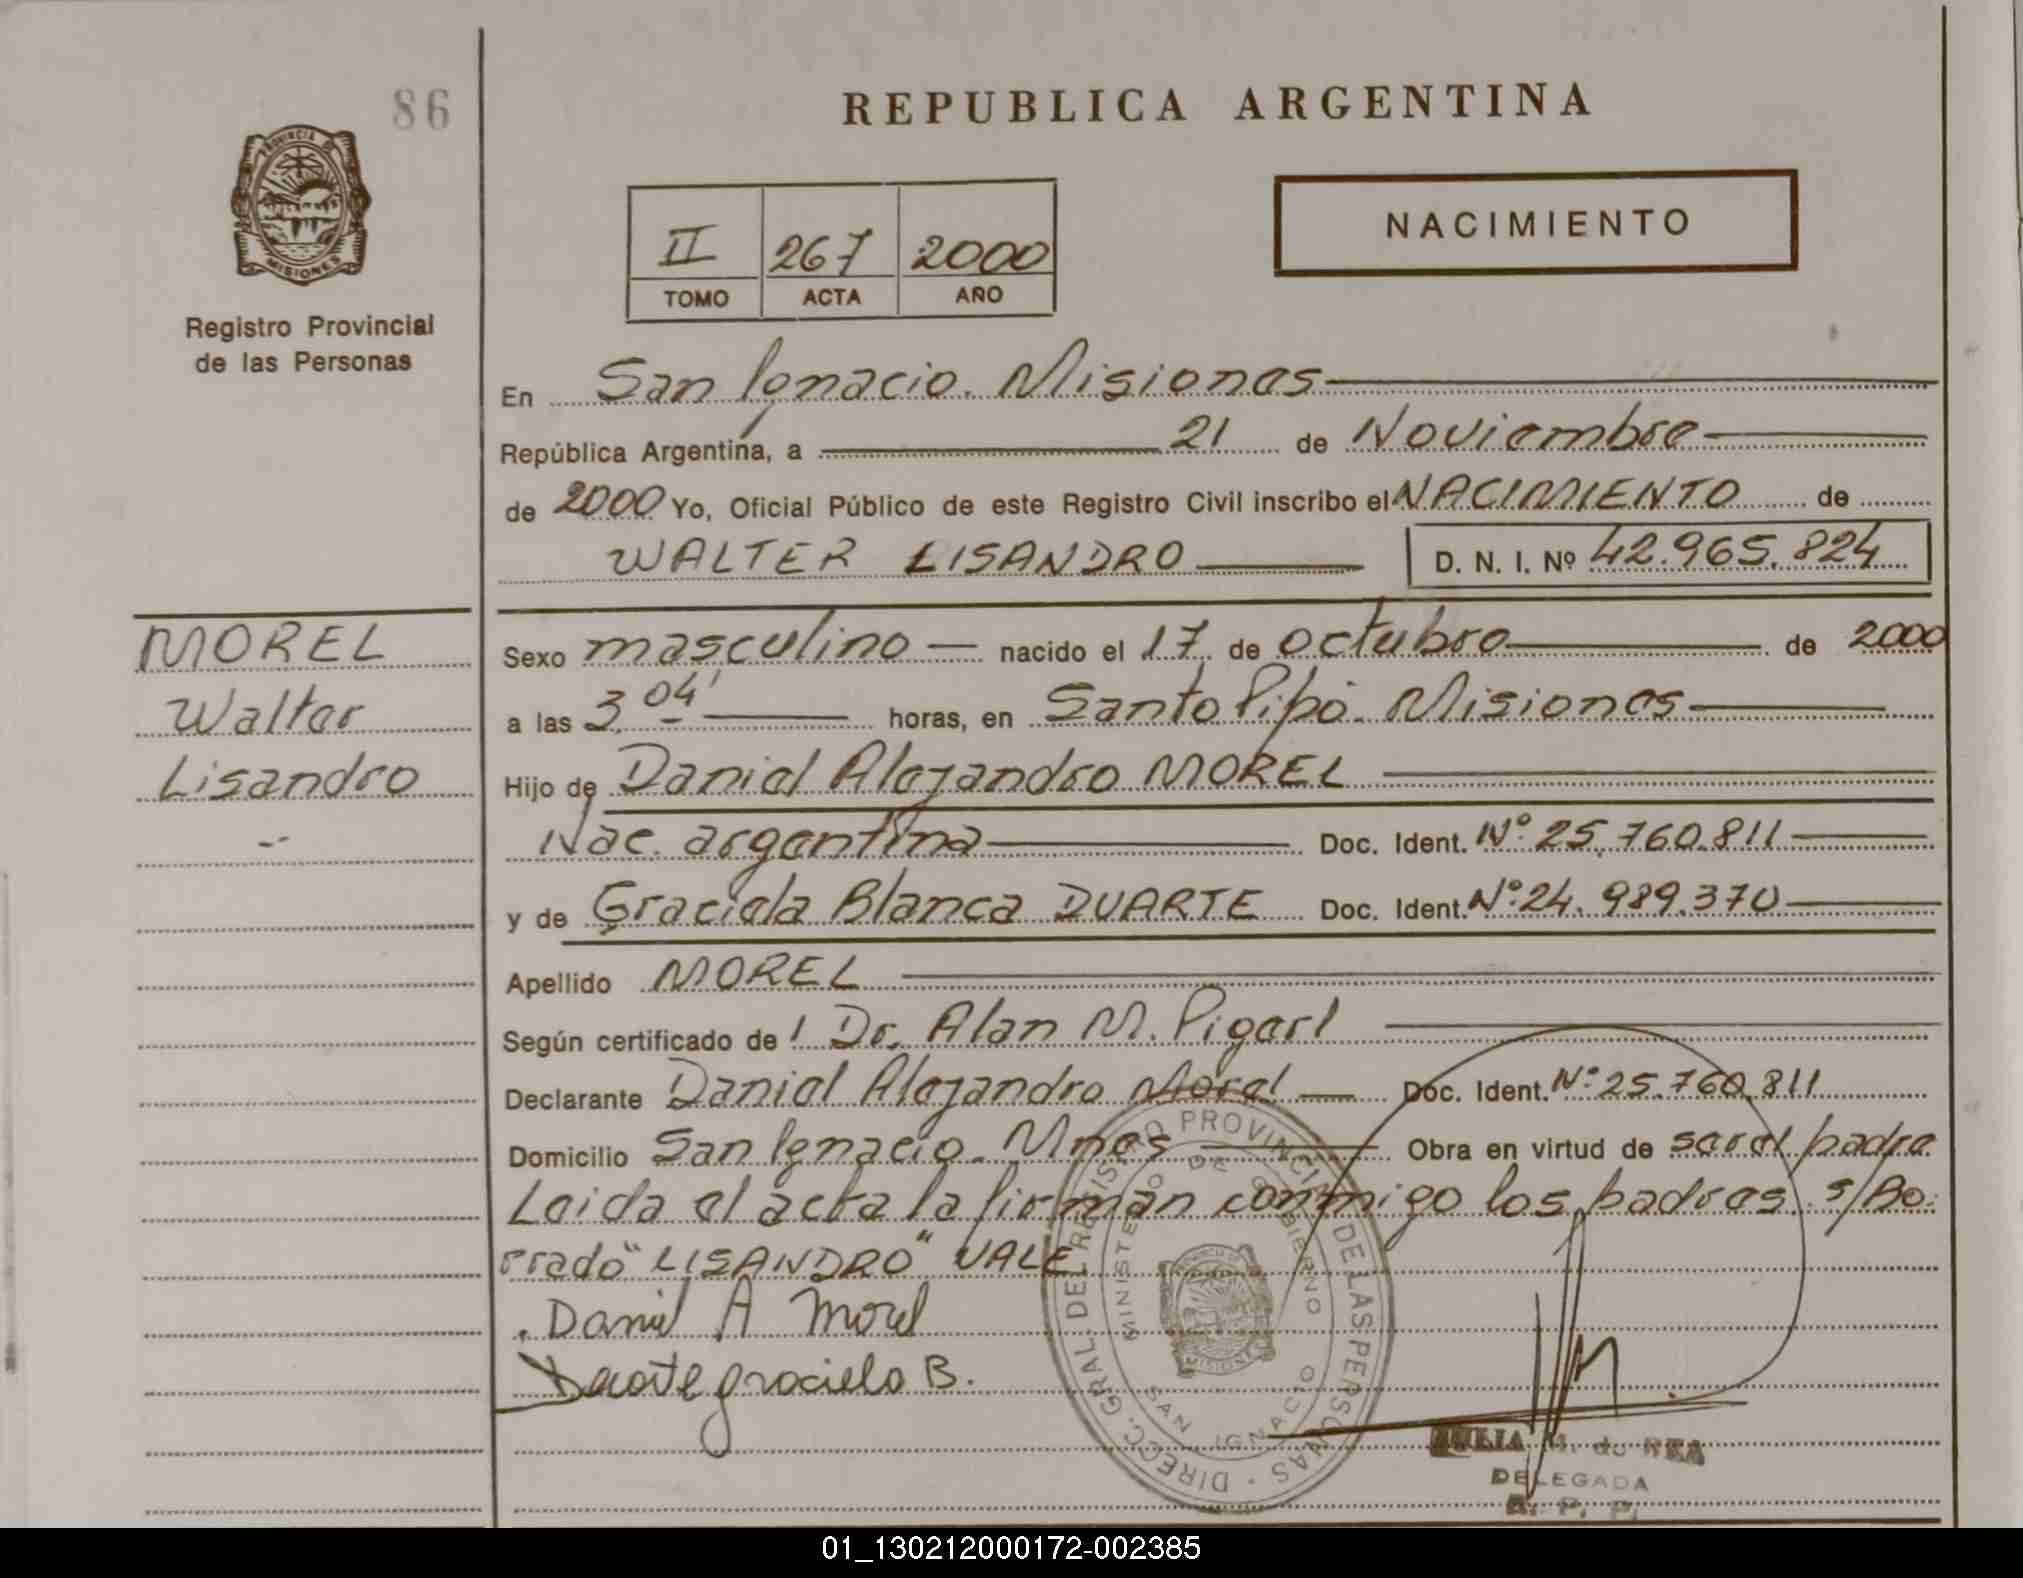 86
REPUBLICA ARGENTINA
PROVINCIA DE
MISIONES
Registro Provincial
de las Personas
NACIMIENTO
II 267 2000
TOMO ACTA AÑO
En San Ignacio. Misiones
República Argentina, a 21 de Noviembre
de 2000 Yo, Oficial Público de este Registro Civil inscribo el NACIMIENTO de
WALTER LISANDRO D. N. I. Nº 42.965.824
MOREL
Walter
Lisandro
Sexo masculino nacido el 17 de octubre de 2000
a las 3 04' horas, en Santo Pipó. Misiones
Hijo de Daniel Alejandro MOREL
Nac. argentina Doc. Ident. Nº 25.760.811
y de Graciela Blanca DUARTE Doc. Ident. Nº 24.989.370
Apellido MOREL
Según certificado de Dr. Alan M. Pigerl
Declarante Daniel Alejandro Morel Doc. Ident. Nº 25.760.811
Domicilio San Ignacio. Mnes Obra en virtud de ser el padre
Leida el acta la firman conmigo los padres. s/Bo.
rrado "LISANDRO" VALE
Daniel A Morel
Duarte graciela B.
DIRECC. GRAL. DEL REGISTRO PROVINCIAL DE LAS PERSONAS
MINISTERIO DE GOBIERNO
MISIONES
SAN IGNACIO
M. de REA
DELEGADA
R. P. P.
01_130212000172-002385